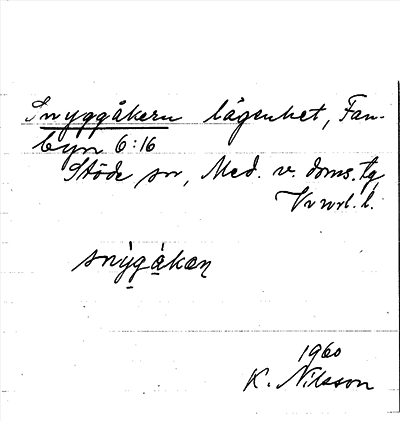 Snyggåkern lägenhet, Fan-
byn 6:16
Stöde sn, Med. v. doms. tg
Vnrl. l.
snỳg̣ạ̊̀kæn
1960
K. Nilsson